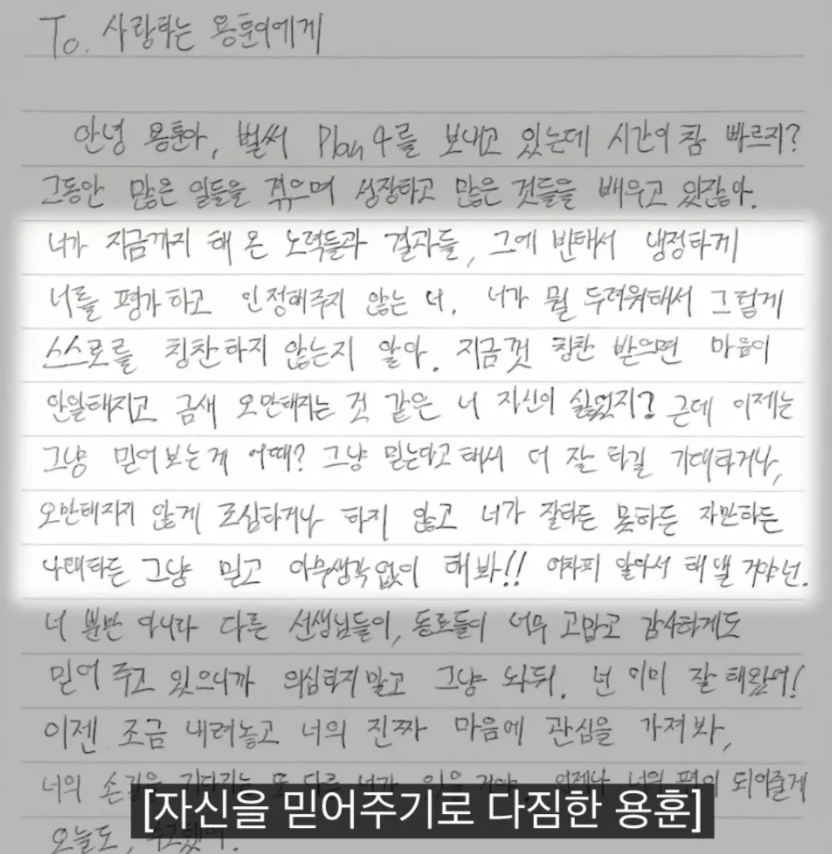 To. 사랑하는 용훈이에게
안녕 용훈아, 벌써 Plan 4를 보내고 있는데 시간이 참 빠르지?
그동안 많은 일들을 겪으며 성장하고 많은 것들을 배우고 있잖아.
너가 지금까지 해 온 노력들과 결과들, 그에 반해서 냉정하게
너를 평가하고 인정해주지 않는 너. 너가 뭘 두려워해서 그렇게
스스로를 칭찬하지 않는지 알아. 지금껏 칭찬 받으면 마음이
안일해지고 금새 오만해지는 것 같은 너 자신이 싫었지? 근데 이제는
그냥 믿어보는게 어때? 그냥 믿는다고 해서 더 잘 하길 기대하거나,
오만해지지 않게 조심하거나 하지 않고 너가 잘하든 못하든 자만하든
나태하든 그냥 믿고 아무생각없이 해봐!! 어차피 알아서 해낼 거야 넌.
너 뿐만 아니라 다른 선생님들이, 동료들이 너무 고맙고 감사하게도
믿어 주고 있으니까 의심하지말고 그냥 놔둬. 넌 이미 잘 해왔어!
이젠 조금 내려놓고 너의 진짜 마음에 관심을 가져봐,
너의 손길을 기다리는 또 다른 너가 있을 거야. 언제나 너의 편이 되어줄게
오늘도, 수고했어.
[자신을 믿어주기로 다짐한 용훈]